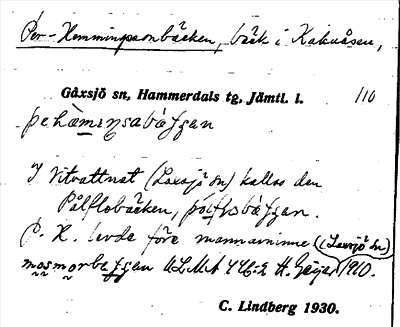 Per-Hemmingsonbäcken, bäck i Kakuåsen,
Gåxsjö sn, Hammerdals tg, Jämtl. l. 110
I Vitvattnet (Laxsjö sn) kallas den
Pålflobäcken,
P. H. levde före mannaminne (Laxsjö sn)
ULMA 446:2 H. Geijer 1910.
C. Lindberg 1930.